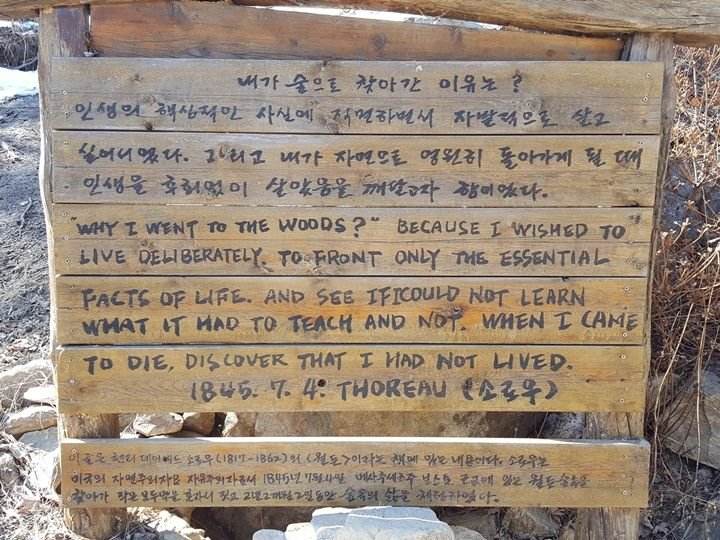 내가 숲으로 찾아간 이유는?
인생의 핵심적인 사실에 직면하면서 자발적으로 살고
싶어서였다. 그리고 내가 자연으로 영원히 돌아가게 될 때
인생을 후회없이 살았음을 깨닫고자 함이었다.
"WHY I WENT TO THE WOODS?" BECAUSE I WISHED TO
LIVE DELIBERATELY. TO FRONT ONLY THE ESSENTIAL
FACTS OF LIFE. AND SEE IF I COULD NOT LEARN
WHAT IT HAD TO TEACH AND NOT. WHEN I CAME
TO DIE, DISCOVER THAT I HAD NOT LIVED.
1845. 7. 4. THOREAU (소로우)
이 글은 헨리 데이빗드 소로우(1817-1862)의 <월든>이라는 책에 있는 내용이다. 소로우는
미국의 자연주의자요 자유주의자로서 1845년 7월 4일 메사추세츠주 보스톤 근교에 있는 월든 숲속을
찾아가 작은 오두막을 혼자서 짓고 2년 2개월 2일 동안 숲속의 삶을 체험하였다.